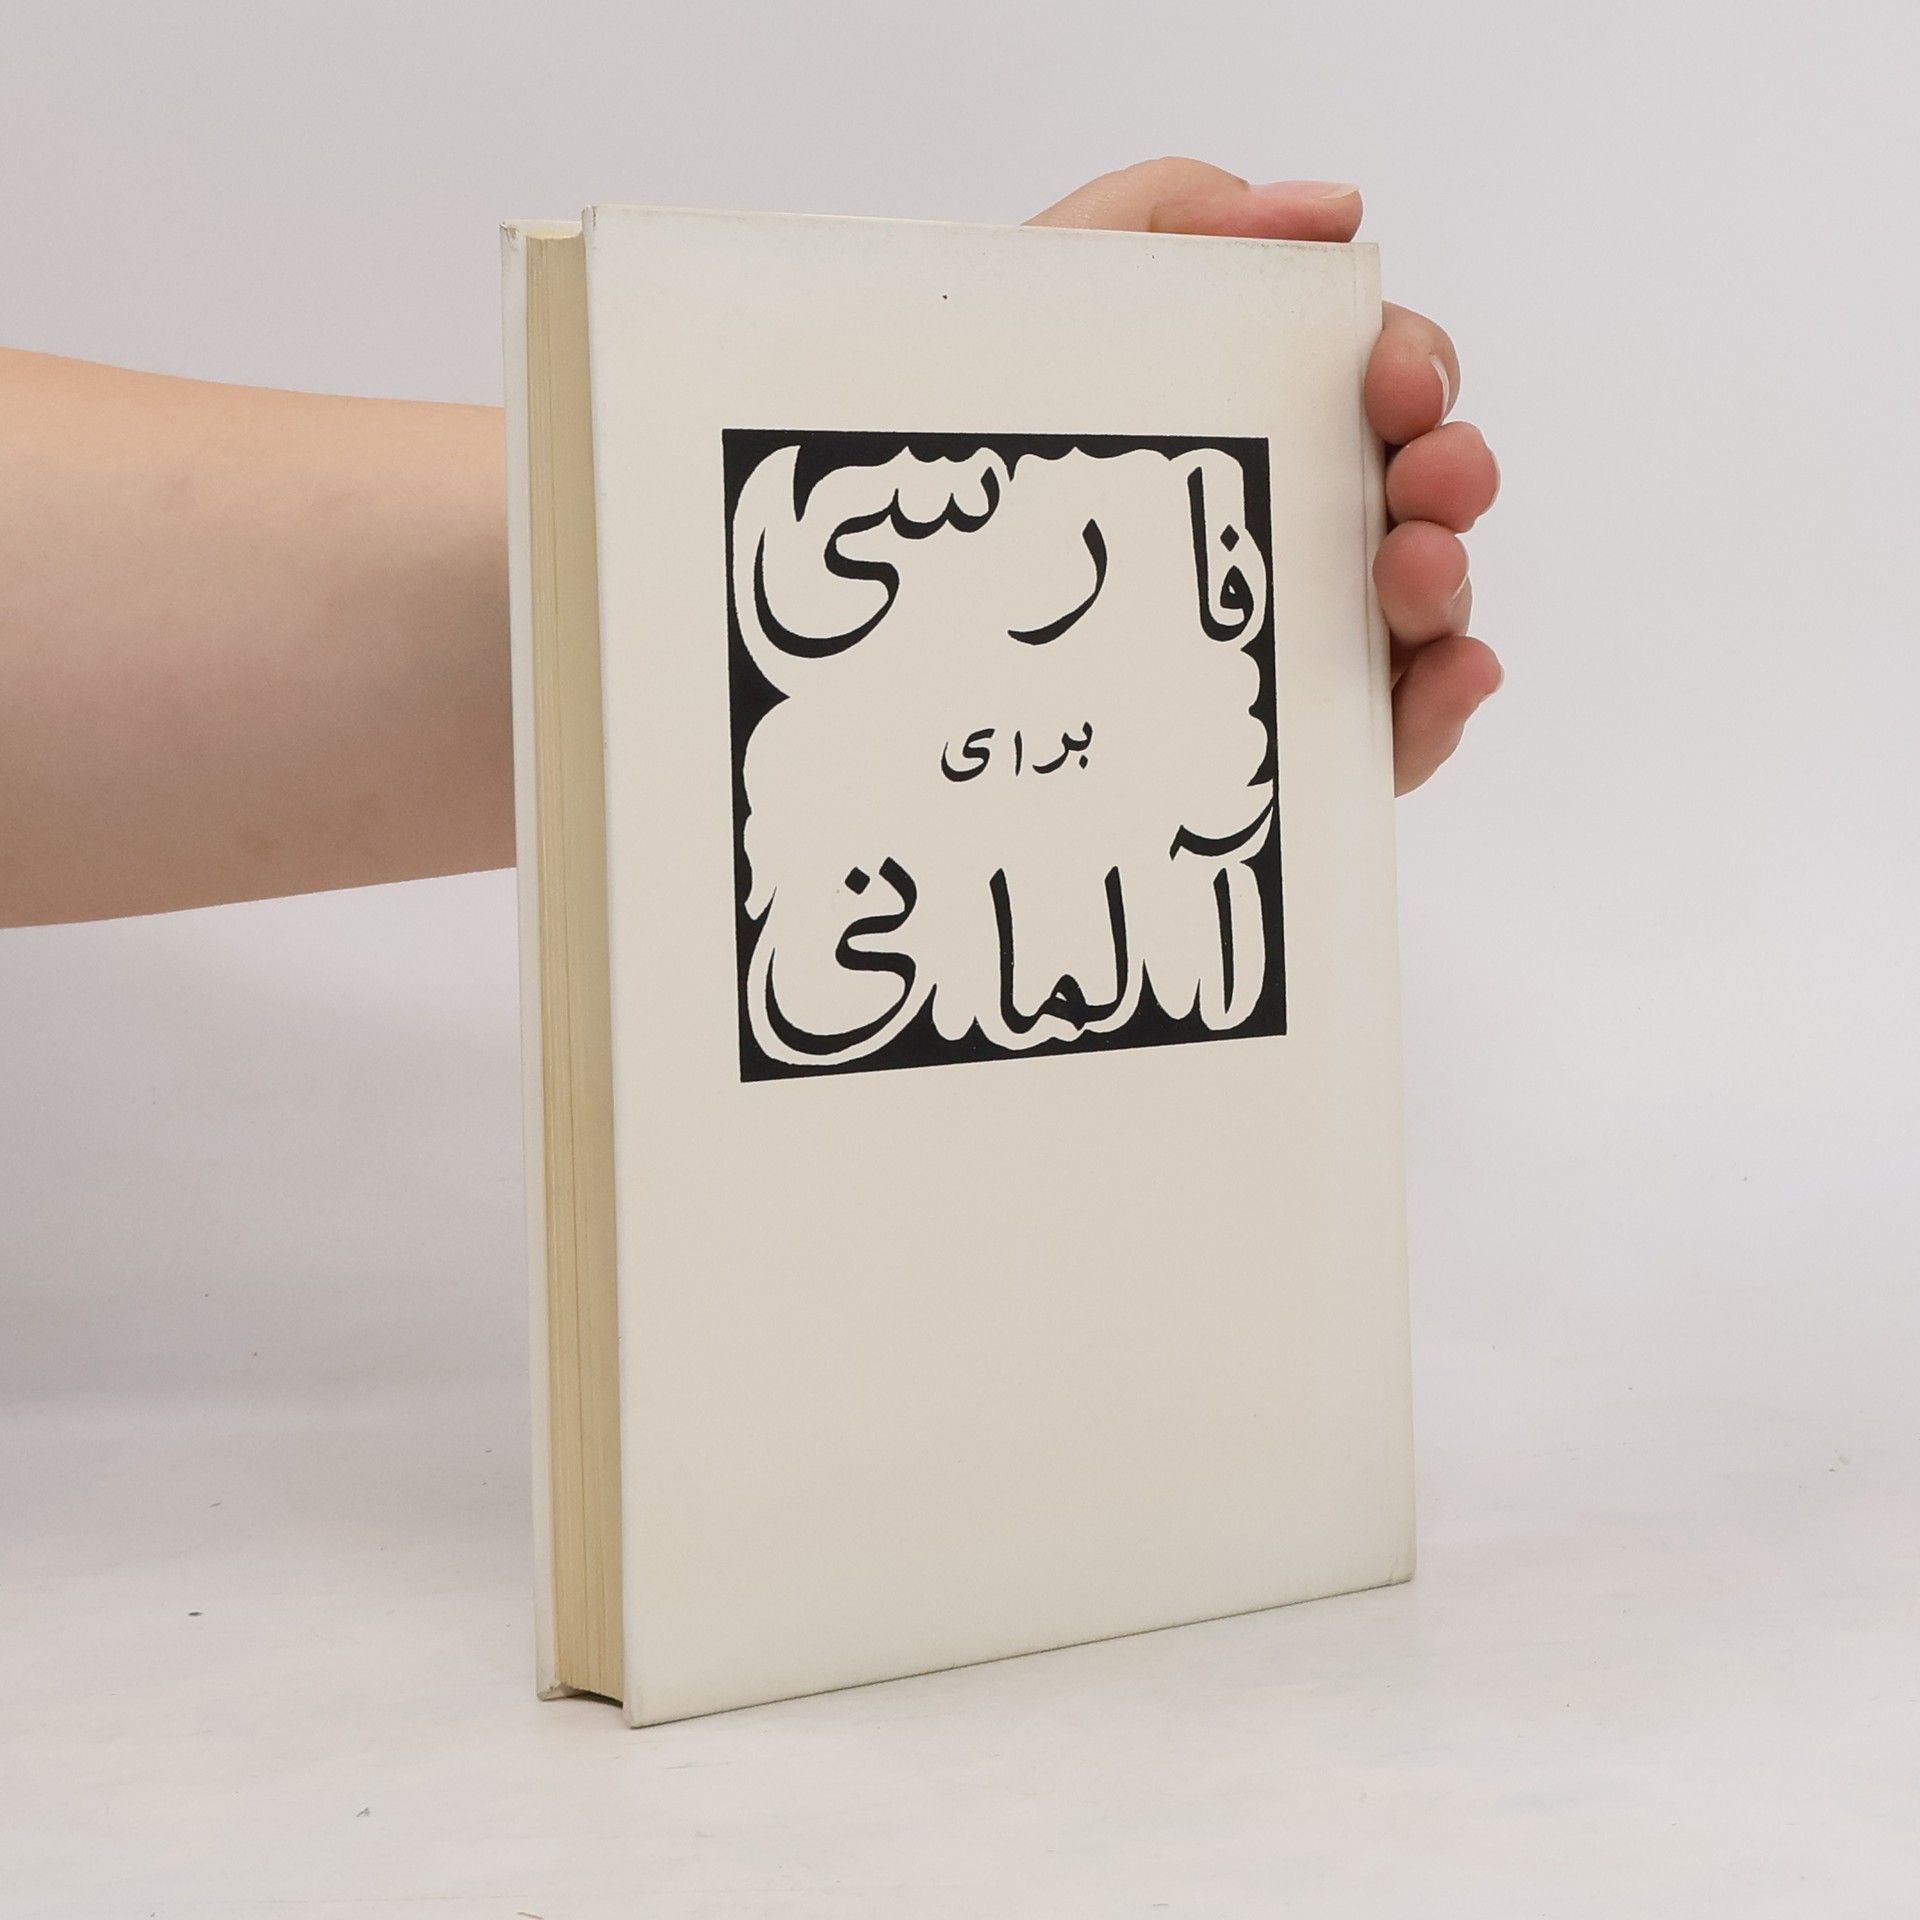 فارسی
برای
آلمانی